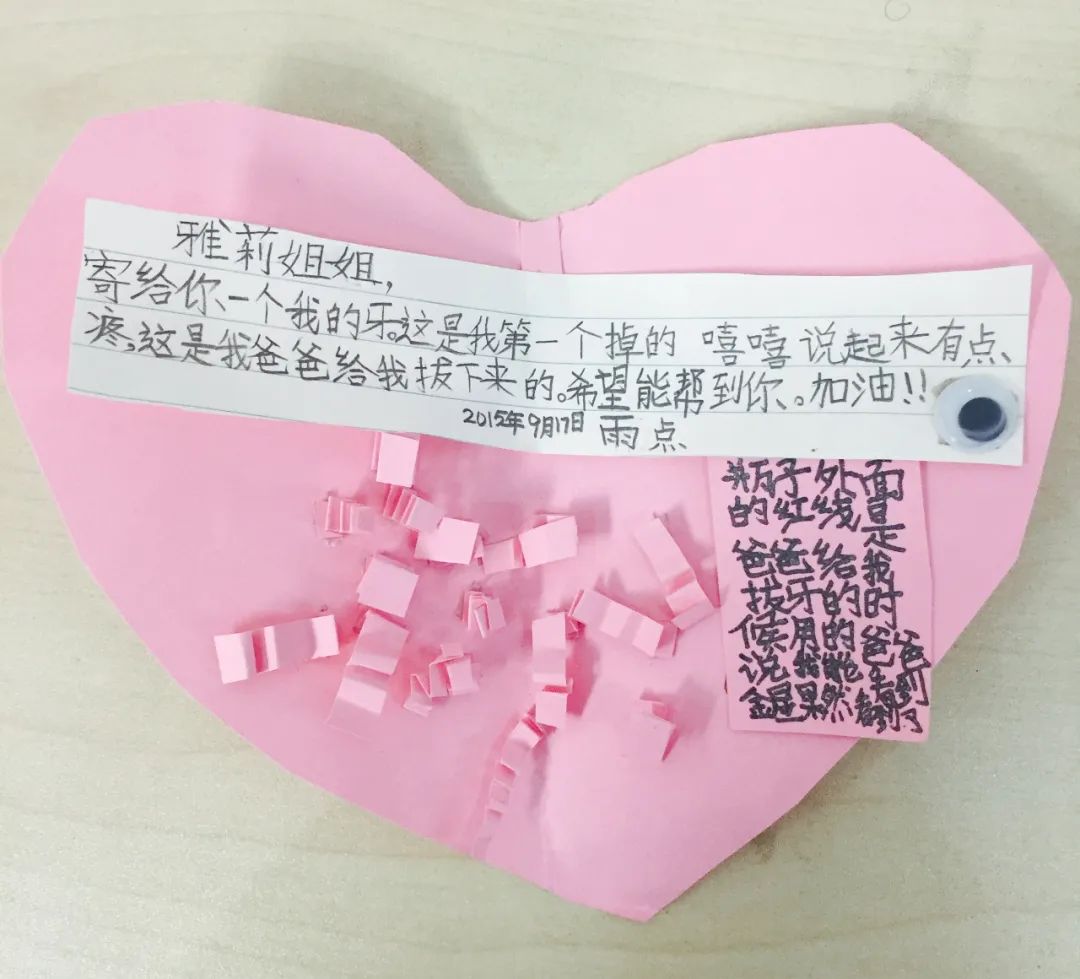 雅莉姐姐,
寄给你一个我的牙。这是我第一个掉的 嘻嘻 说起来有点
疼,这是我爸爸给我拔下来的。希望能帮到你。加油!!
2015年9月17日 雨点
瓶子外面
的红线是
爸爸给我
拔牙的时
候用的爸爸
说我能看到
金星果然看到了